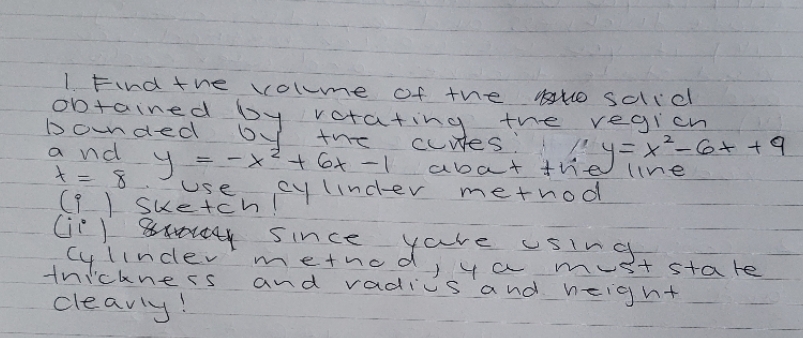 1. Find the volume of the solid
obtained by rotating the region
bounded by the curves. y = x² - 6x + 9
and y = -x² + 6x - 1 abat the line
x = 8. use cylinder method
(i) sketch!
(ii) since yare using
cylinder method, ya must state
thickness and radius and height
clearly!